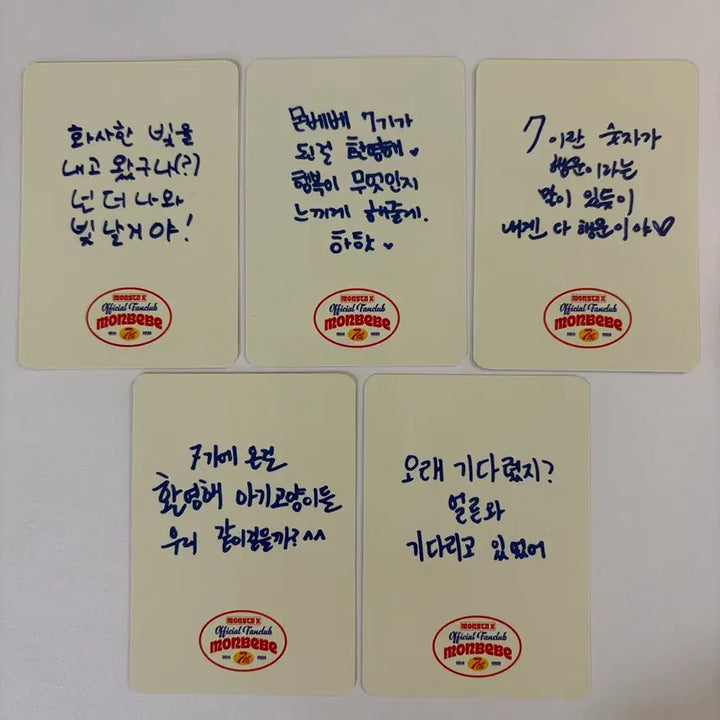 화사한 빛을
내고 왔구나(?)
넌 더 나와
빛날거야!
MONSTA X
Official Fanclub
MONBEBE
7th
몬베베 7기가
된걸 환영해 ♥
행복이 무엇인지
느끼게 해줄게.
하핫 ♥
MONSTA X
Official Fanclub
MONBEBE
7th
7이란 숫자가
행운이라는
말이 있듯이
내겐 다 행운이야♡
MONSTA X
Official Fanclub
MONBEBE
7th
7기에 온걸
환영해 아기고양이들
우리 같이걸을까?^^
MONSTA X
Official Fanclub
MONBEBE
7th
오래 기다렸지?
얼른와
기다리고 있었어
MONSTA X
Official Fanclub
MONBEBE
7th